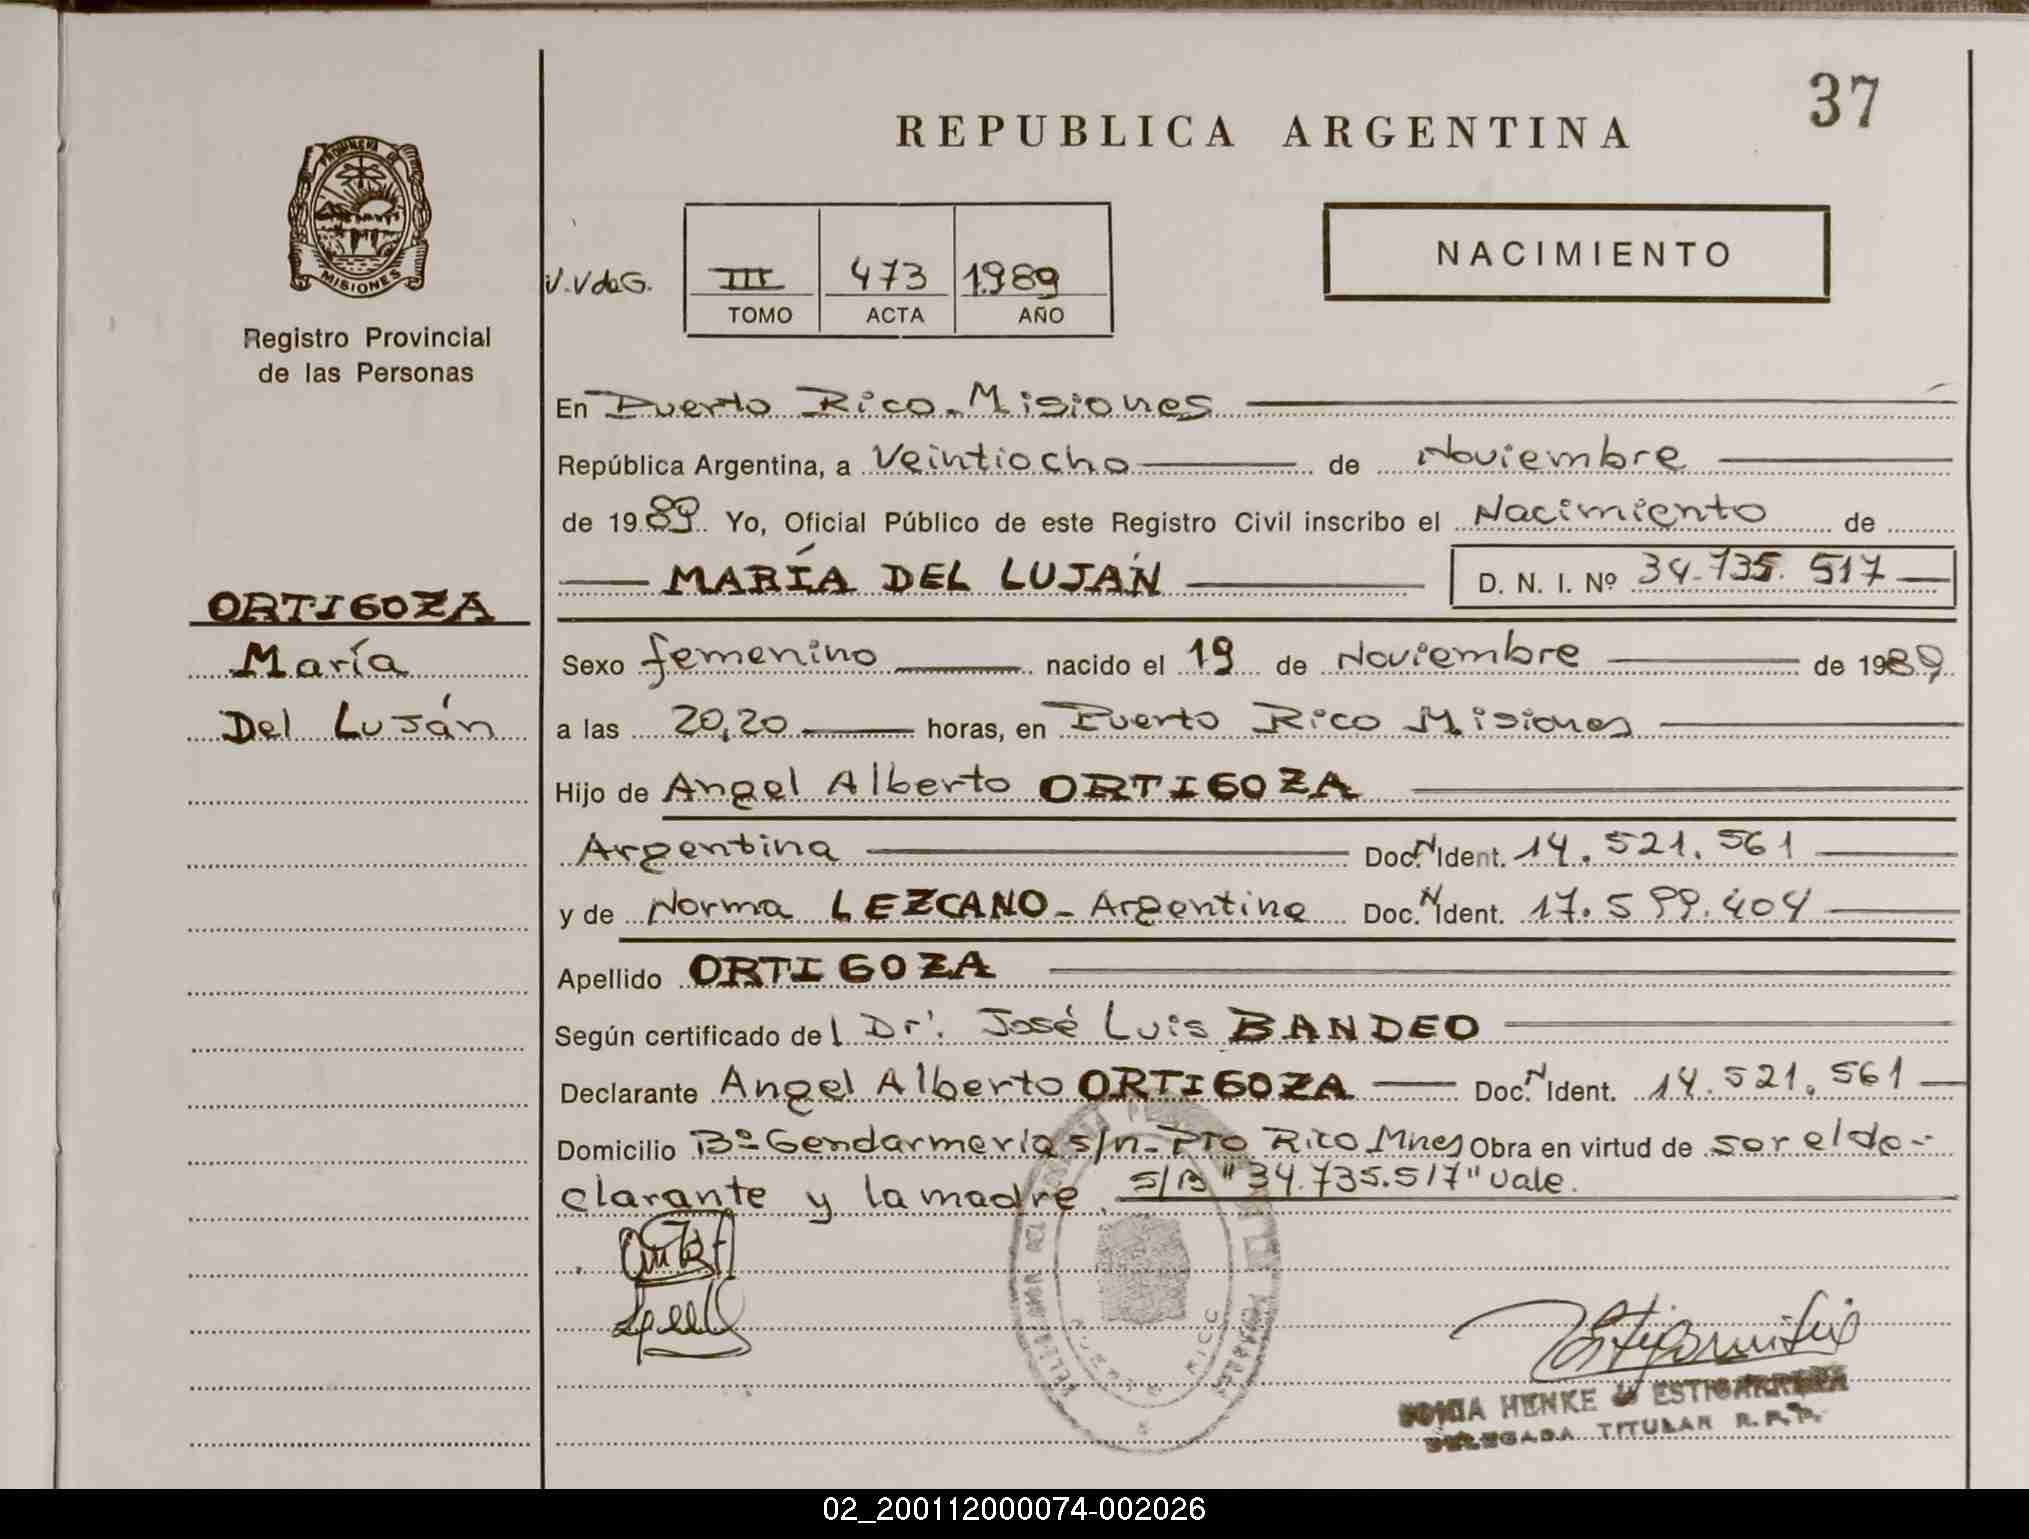 37
REPUBLICA ARGENTINA
PROVINCIA DE
MISIONES
Registro Provincial
de las Personas
NACIMIENTO
V.V de G.
III 473 1989
TOMO ACTA AÑO
En Puerto Rico - Misiones
República Argentina, a Veintiocho de Noviembre
de 1989 Yo, Oficial Público de este Registro Civil inscribo el Nacimiento de
MARÍA DEL LUJÁN D. N. I. Nº 34.735.517
ORTIGOZA
María
Del Luján
Sexo femenino nacido el 19 de Noviembre de 1989
a las 20,20 horas, en Puerto Rico Misiones
Hijo de Angel Alberto ORTIGOZA
Argentina Doc. N Ident. 14.521.561
y de Norma LEZCANO - Argentina Doc. N Ident. 17.599.404
Apellido ORTIGOZA
Según certificado del Dr. José Luis BANDEO
Declarante Angel Alberto ORTIGOZA Doc. N Ident. 14.521.561
Domicilio Bº Gendarmería s/n - Pto Rico Mnes Obra en virtud de ser el de-
clarante y la madre. S/B "34.735.517" Vale.
HENKE de ESTIGARRIBIA
DELEGADA TITULAR R.P.P.
02_200112000074-002026